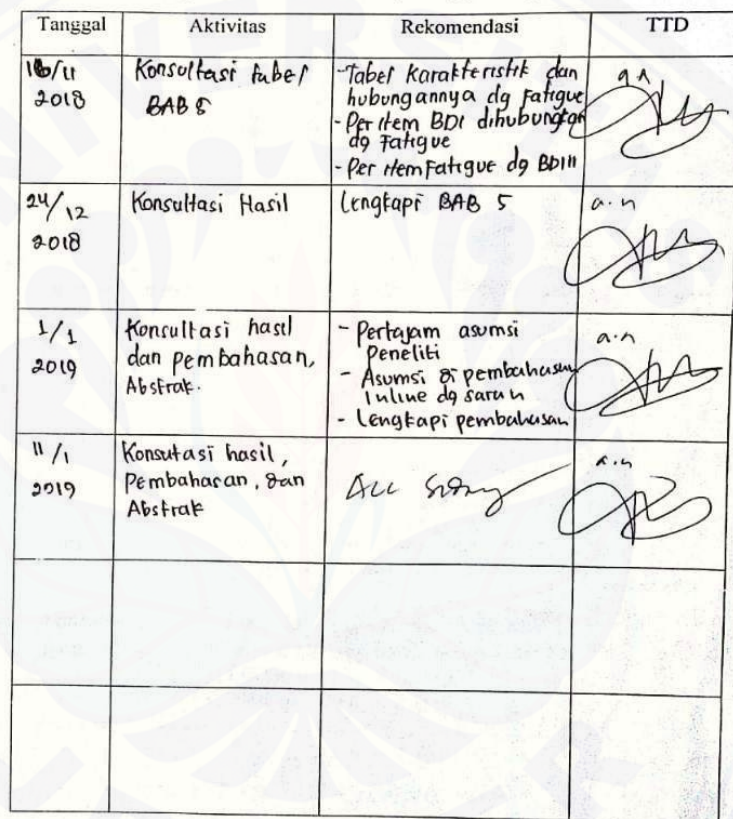 Tanggal Aktivitas Rekomendasi TTD
16/11
2018
Konsultasi tabel
BAB 5
-Tabel Karakteristik dan
hubungannya dg Fatigue
- Per item BDI dihubungkan
dg Fatigue
- Per item Fatigue dg BDI II
a.n
24/12
2018
Konsultasi Hasil
Lengkapi BAB 5
a.n
1/1
2019
Konsultasi hasil
dan pembahasan,
Abstrak.
- Pertajam asumsi
Peneliti
- Asumsi di pembahasan
Inline dg saran
- Lengkapi pembahasan
a.n
11/1
2019
Konsutasi hasil,
Pembahasan, dan
Abstrak
Acc Sidang
a.n